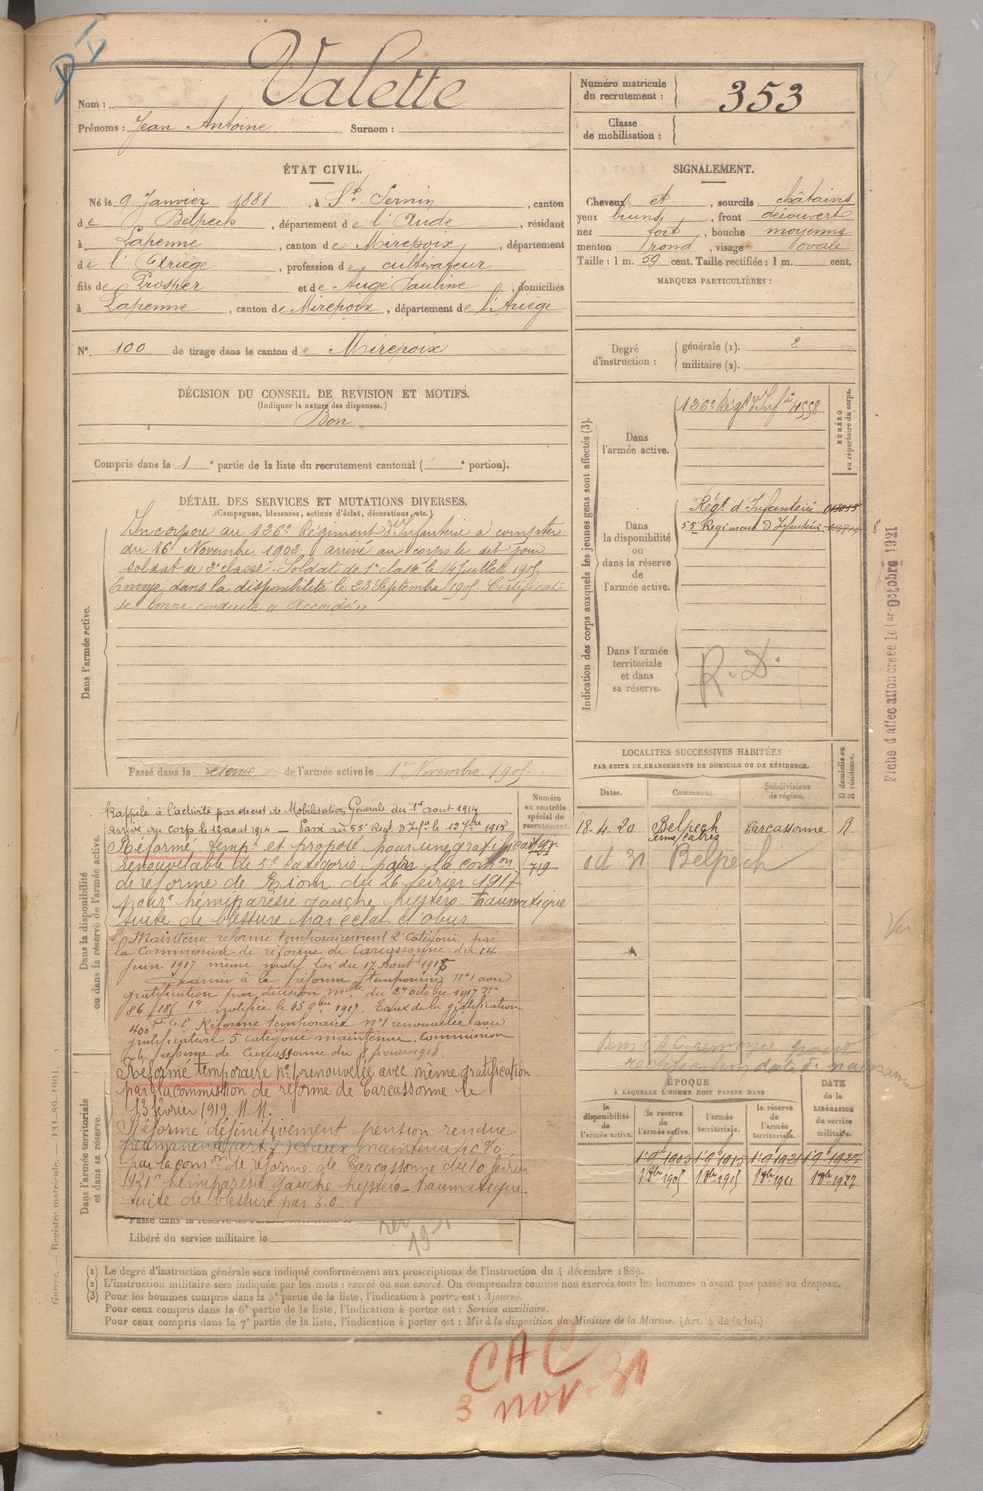 Nom : Valette
Prénoms : Jean Antoine Surnom :
Numéro matricule du recrutement : 353
Classe de mobilisation :
ÉTAT CIVIL.
Né le 9 Janvier 1881, à St Sernin, canton
de Belpech, département de l'Aude, résidant
à Lapenne, canton de Mirepoix, département
de l'Ariège, profession de cultivateur
fils de Prosper et de Augé Pauline, domiciliés
à Lapenne, canton de Mirepoix, département de l'Ariège
N° 100 de tirage dans le canton de Mirepoix
SIGNALEMENT.
Cheveux et, sourcils châtains
yeux bruns, front découvert
nez fort, bouche moyenne
menton rond, visage ovale
Taille : 1 m. 59 cent. Taille rectifiée : 1 m. cent.
MARQUES PARTICULIÈRES :
Degré d'instruction : générale (1). 2
militaire (2).
DÉCISION DU CONSEIL DE REVISION ET MOTIFS.
(Indiquer la nature des dispenses.)
Bon
Compris dans la 1e partie de la liste du recrutement cantonal ( e portion).
DÉTAIL DES SERVICES ET MUTATIONS DIVERSES.
(Campagnes, blessures, actions d'éclat, décorations, etc.)
Dans l'armée active.
Incorporé au 126e Régiment d'Infanterie à compter
du 16 Novembre 1902, arrivé au corps le dit jour
soldat de 2e classe. Soldat de 1e classe le 14 Juillet 1905
Envoyé dans la disponibilité le 23 Septembre 1905. Certificat
de bonne conduite "Accordé"
Passé dans la réserve de l'armée active le 1er Novembre 1905
Indication des corps auxquels les jeunes gens sont affectés (3).
NUMÉRO au répertoire du corps.
Dans l'armée active.
126e Régt d'Infie 4558
Dans la disponibilité ou dans la réserve de l'armée active.
Régt d'Infanterie
55e Régiment d'Infanterie
Dans l'armée territoriale et dans sa réserve.
R. D.
Fiche d'affectation créée le 1er Octobre 1921
Dans la disponibilité ou dans la réserve de l'armée active.
Numéro au contrôle spécial du recrutement.
Rappelé à l'activité par décret de Mobilisation Générale du 1er aout 1914
arrivé au corps le 12 aout 1914 — Passé au 55e Régt d'Infie le
Réformé temp. et proposé pour une gratification
renouvelable de 5e catégorie par la comon
de réforme de Riom du 26 février 1917
pour hémiparésie gauche hystéro traumatique
suite de blessure par éclat d'obus
719
Maintenu réformé temporairement 2e catégorie par
la Commission de réforme de Carcassonne du 14
Juin 1917 même motif Loi du 17 Aout 1915
à la réforme temporaire n°1 avec
gratification par décision mlle du 27 octobre 1917
notifiée le 1917. Taux de la gratification
400 f. Réforme temporaire n°1 renouvelée avec
gratification 5e catégorie maintenue. Commission
de réforme de Carcassonne du 1918.
Réformé temporaire n°1 renouvelée avec même gratification
par la commission de réforme de Carcassonne le
13 février 1919
Réformé définitivement pension rendue
permanente taux maintenu
par la comon de réforme de Carcassonne du 10 février
1921 hémiparésie gauche hystéro-traumatique
suite de blessure par E.O.
Dans l'armée territoriale et dans sa réserve.
Libéré du service militaire le
LOCALITÉS SUCCESSIVES HABITÉES
PAR SUITE DE CHANGEMENTS DE DOMICILE OU DE RÉSIDENCE.
Dates. Communes. Subdivisions de région. D domicile ou R résidence.
18.4.20 Belpech Carcassonne R.
oct 31 Belpech
ÉPOQUE
À LAQUELLE L'HOMME DOIT PASSER DANS
la disponibilité de l'armée active. la réserve de l'armée active. l'armée territoriale. la réserve de l'armée territoriale. DATE de la LIBÉRATION du service militaire.
(1) Le degré d'instruction générale sera indiqué conformément aux prescriptions de l'instruction du 4 décembre 1889.
(2) L'instruction militaire sera indiquée par les mots : exercé ou non exercé. On comprendra comme non exercés tous les hommes n'ayant pas passé au drapeau.
(3) Pour les hommes compris dans la 5e partie de la liste, l'indication à porter est : Ajourné.
Pour ceux compris dans la 6e partie de la liste, l'indication à porter est : Service auxiliaire.
Pour ceux compris dans la 7e partie de la liste, l'indication à porter est : Mis à la disposition du Ministre de la Marine. (Art. 4 de la loi.)
CAC
3 nov. 31